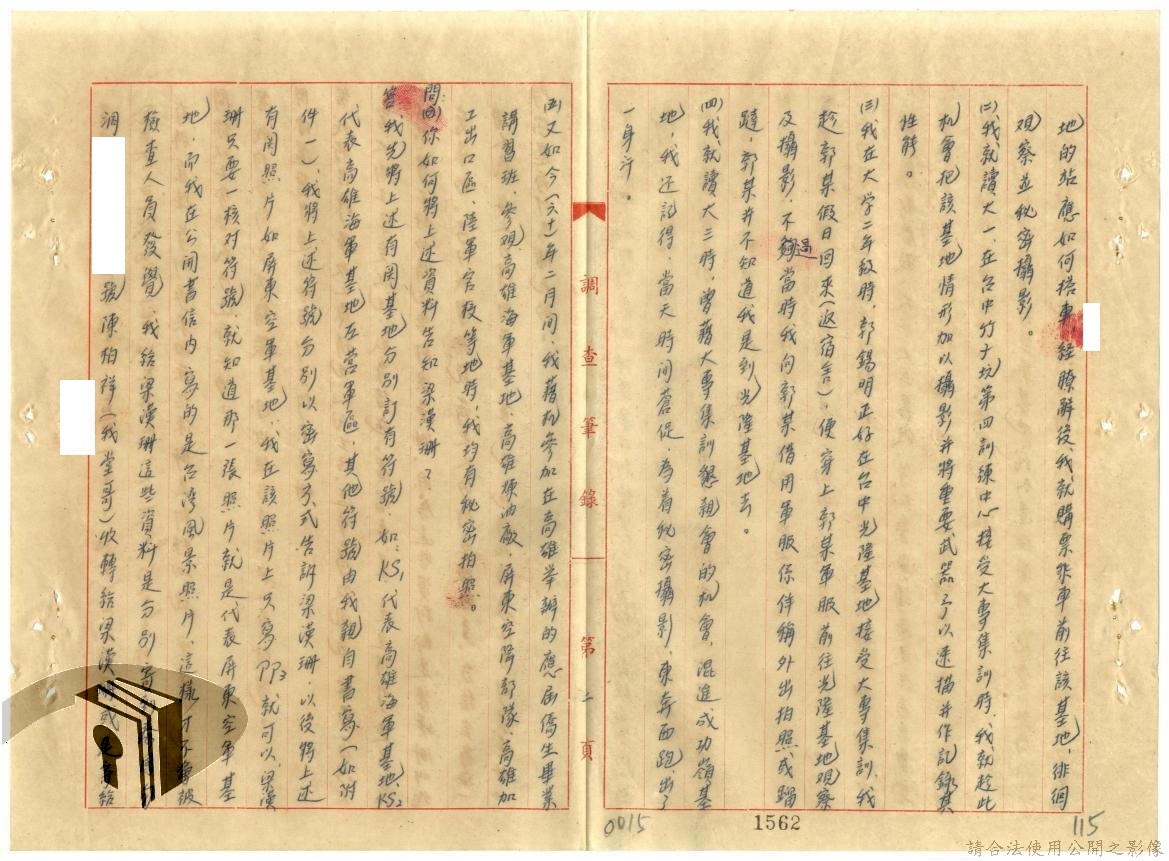 地的站應如何搭車經瞭解後,我就購票乘車前往該基地,徘徊
观察並秘密攝影。
㈡我就讀大一,在台中竹子坑第四訓練中心接受大專集訓時,我就趁此
机會把該基地情形加以攝影并將重要武器予以速描并作記錄其
性能。
㈢我在大学二年級時,郭錫明正好在台中光隆基地接受大專集訓,我
趁郭某假日回來(返宿舍),便穿上郭某軍服前往光隆基地观察
及攝影,不過當時我向郭某借用軍服係佯稱外出拍照或蹓
躂,郭某并不知道我是到光隆基地去。
㈣我就讀大三時,曾藉大專集訓懇親會的机會,混進成功嶺基
地,我还記得,當天時间蒼促,為着秘密攝影,東奔西跑,出了
一身汗。
調查筆錄 第 頁
㈤又如今(六十)年二月间,我藉机參加在高雄举辦的應届僑生畢業
講習班,參观高雄海軍基地、高雄煉油廠、屏東空降部隊、高雄加
工出口區、陸軍官校等地時,我均有秘密拍照。
問:你如何將上述資料告知梁漢珊?
答:我先將上述有関基地分別訂有符號,如:KS1代表高雄海軍基地、KS2
代表高雄海軍基地左營軍區,其他符號由我親自書寫(如附
件一),我將上述符號分別以密寫方式告訴梁漢珊,以後將上述
有関照片如屏東空軍基地,我在該照片上只寫PP3就可以,梁漢
珊只要一核对符號,就知道那一張照片就是代表屏東空軍基
地,而我在公開書信内寫的是台湾風景照片,這樣可不會被
檢查人員發覺,我給梁漢珊這些資料是分別寄
洞 號陳柏祥(我堂哥)收轉給梁漢 或 給
0015
1562
115
請合法使用公開之影像